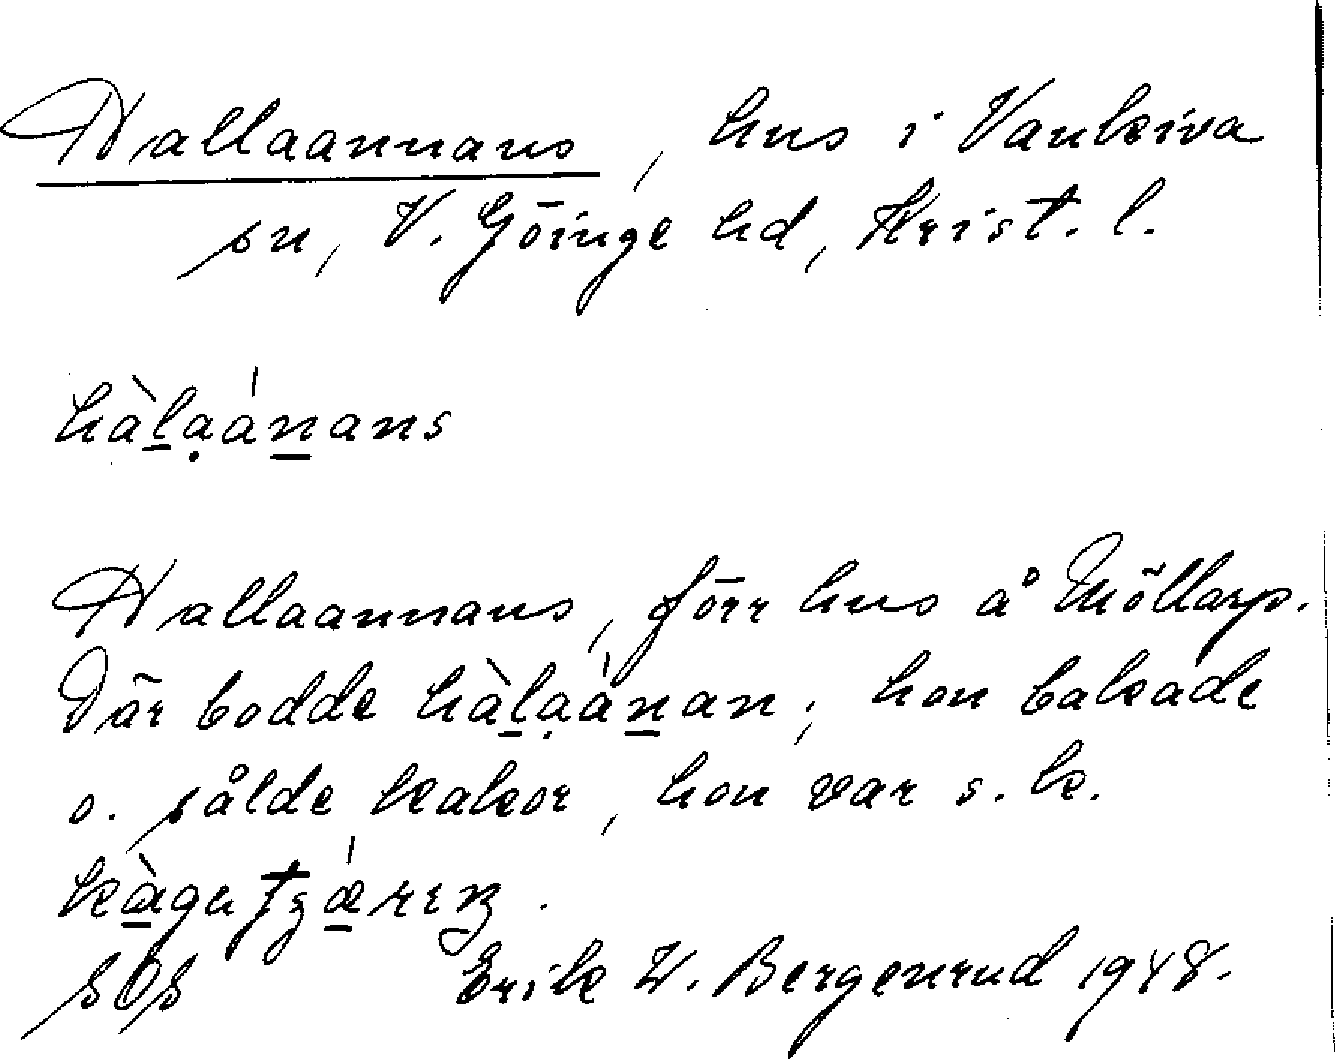 Hallaannans, hus i Vankiva
sn, V. Göinge hd, Krist. l.
hàḻạáṉans
Hallaannans, förr hus å Möllarp.
Där bodde hàḻạàṉan; hon bakade
o. sålde kakor, hon var s. k.
Erik W. Bergenrud 1948.